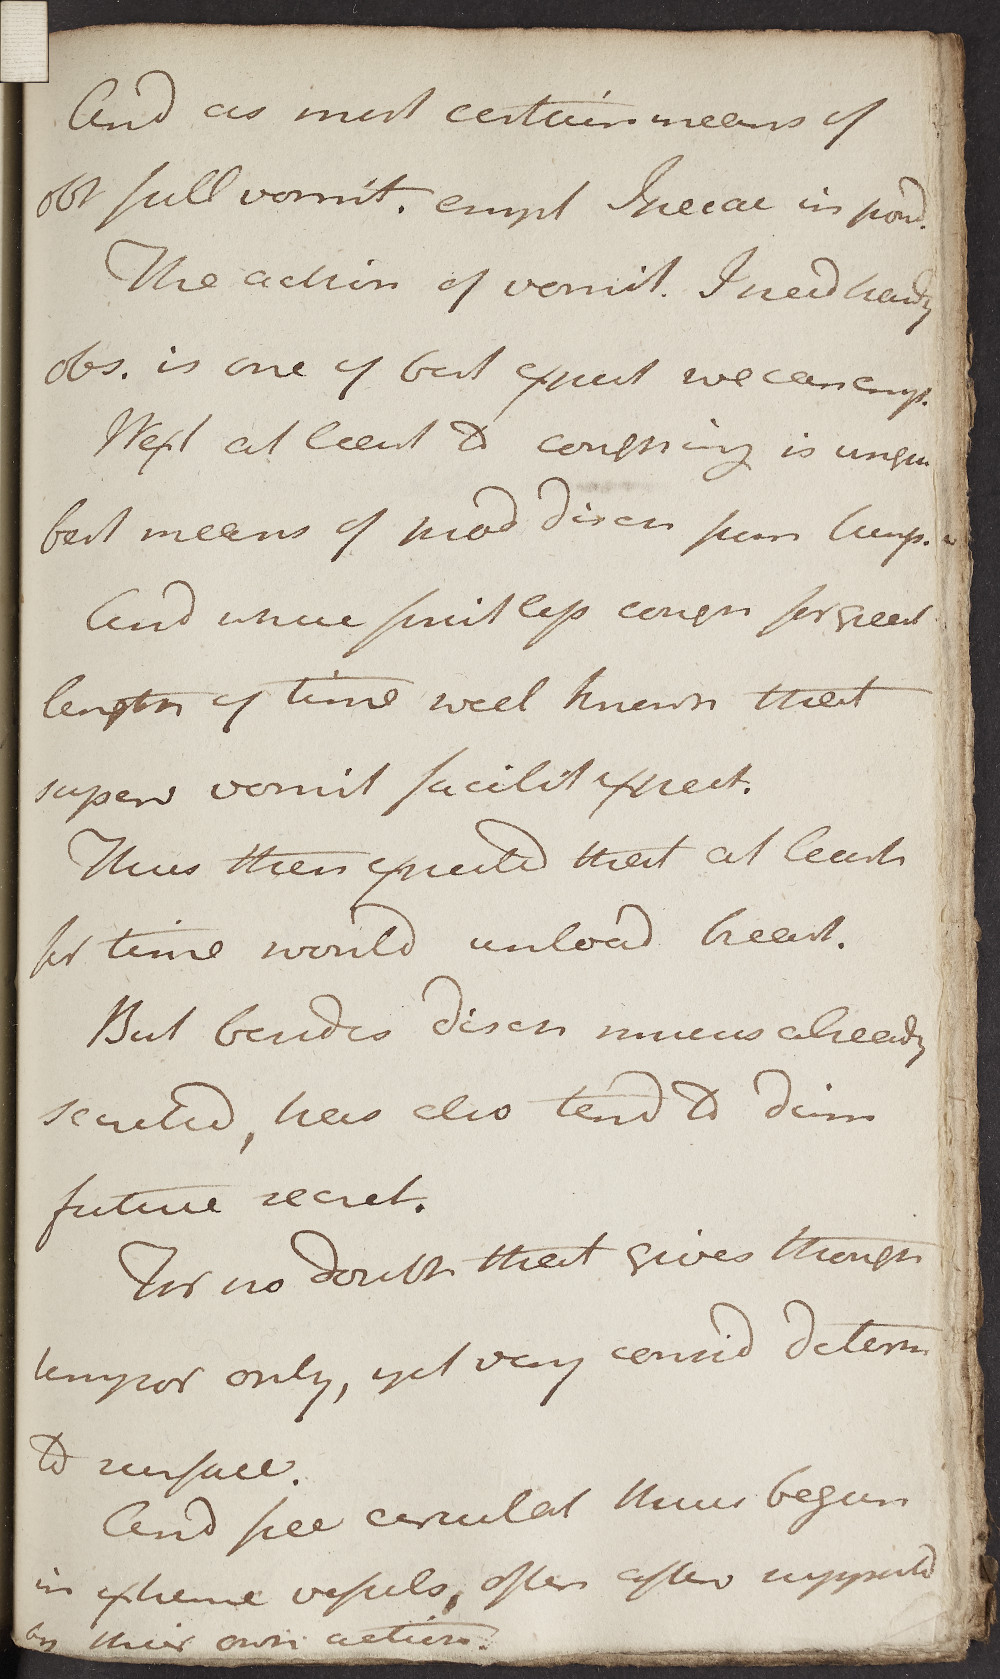 And as most certain means of
obt full vomit. empl Ipecac in powd.
The action of vomit. I need hardy
obs. is one of best expect we can emp.
Next at least to coughing is unqu
best means of prod disch from lungs.
And where fruitless cough for great
length of time well known that
superv vomit facilit expect.
Thus then expected that at least
for time would unload breast.
But besides disch mucus already
secreted, has also tend to dimin
future secret.
For no doubt that gives though
tempor only, yet very consid determ
to surface.
And free circulat thus begun
in extreme vessels, often after supported
by their own action.